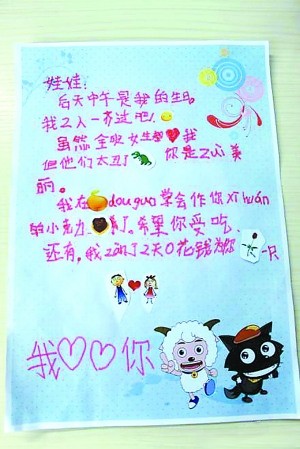 娃娃:
后天中午是我的生日,
我2人一齐过吧!
虽然全班女生都❤我
但他们太丑了 你是2心美
丽。
我在douguo学会作你xǐ huán
的小巧力 了。希望你爱吃
还有,我2了2天0花钱为你 一只
我♡♡你